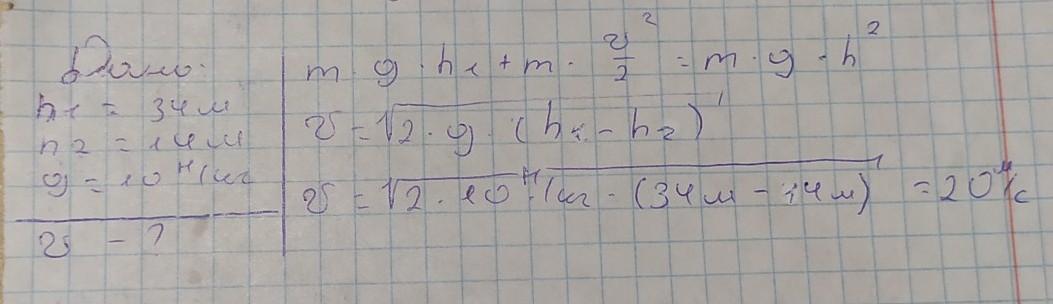 Дано:
h1 = 34 м
h2 = 14 м
g = 10 Н/кг
v - ?
m · g · h1 + m · v²/2 = m · g · h²
v = √2 · g · (h1 - h2)
v = √2 · 10 Н/кг · (34 м - 14 м) = 20 м/с